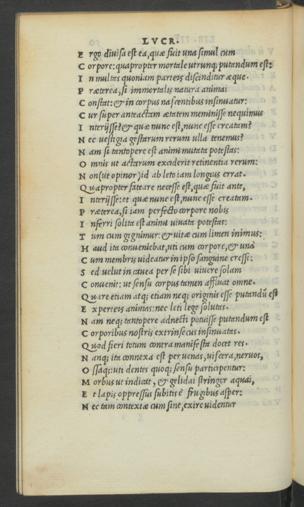 LVCR.
E rgo diuisa est ea, quæ fuit una simul cum
C orpore: quapropter mortale utrunq; putandum est:
I n multas quoniam parteis discinditur æque.
P ræterea, si immortalis natura animai
C onstat: & in corpus nascentibus insinuatur:
C ur super anteactam ætatem meminisse nequimus
I nterijsse? & quæ nunc est, nunc esse creatam?
N ec uestigia gestarum rerum ulla tenemus?
N am si tantopere est animi mutata potestas:
O mnis ut actarum exciderit retinentia rerum:
N on (ut opinor) id ab leto iam longius errat.
Q uapropter fateare necesse est, quæ fuit ante,
I nterijsse: et quæ nunc est, nunc esse creatam.
P ræterea, si iam perfecto corpore nobis
I nferri solita est animi uiuata potestas:
T um cum gignimur: & uitæ cum limen inimus:
H aud ita conueniebat, uti cum corpore, & una
C um membris uideatur in ipso sanguine cresse:
S ed uelut in cauea per se sibi uiuere solam
C onuenit: ut sensu corpus tamen affluat omne.
Q uare etiam atq; etiam neq; originis esse putandū est
E xpereis animas: nec leti lege solutas.
N am neq; tantopere adnecti potuisse putandum est
C orporibus nostris extrinsecus insinuatas.
Q uod fieri totum contra manifesta docet res.
N anq; ita connexa est per uenas, uiscera, neruos,
O ssaq; uti dentes quoq; sensu participentur:
M orbus ut indicat, & gelidai stringor aquai,
E t lapis oppressus subitis è frugibus asper:
N ec tam contextæ cum sint, exire uidentur